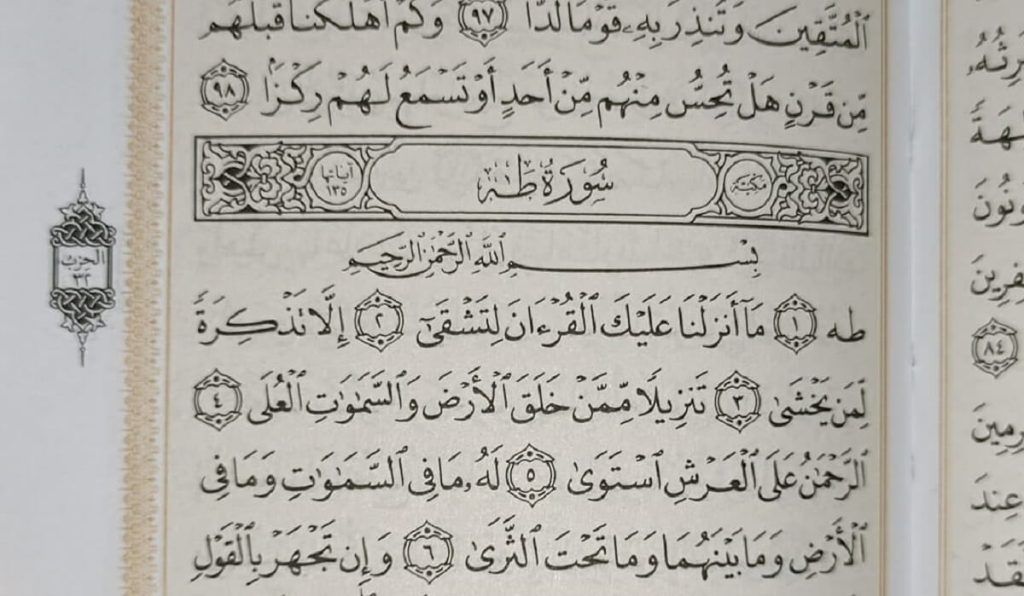 ٱلْمُتَّقِينَ وَتُنذِرَ بِهِۦ قَوْمًا لُّدًّا ٩٧ وَكَمْ أَهْلَكْنَا قَبْلَهُم
مِّن قَرْنٍ هَلْ تُحِسُّ مِنْهُم مِّنْ أَحَدٍ أَوْ تَسْمَعُ لَهُمْ رِكْزًۢا ٩٨
مكيّة سُورَةُ طه آياتها ١٣٥
بِسْمِ ٱللَّهِ ٱلرَّحْمَٰنِ ٱلرَّحِيمِ
طه ١ مَآ أَنزَلْنَا عَلَيْكَ ٱلْقُرْءَانَ لِتَشْقَىٰٓ ٢ إِلَّا تَذْكِرَةً
لِّمَن يَخْشَىٰ ٣ تَنزِيلًا مِّمَّنْ خَلَقَ ٱلْأَرْضَ وَٱلسَّمَٰوَٰتِ ٱلْعُلَى ٤
ٱلرَّحْمَٰنُ عَلَى ٱلْعَرْشِ ٱسْتَوَىٰ ٥ لَهُۥ مَا فِى ٱلسَّمَٰوَٰتِ وَمَا فِى
ٱلْأَرْضِ وَمَا بَيْنَهُمَا وَمَا تَحْتَ ٱلثَّرَىٰ ٦ وَإِن تَجْهَرْ بِٱلْقَوْلِ
الحزب
٣٢
٨٤
عِندَ